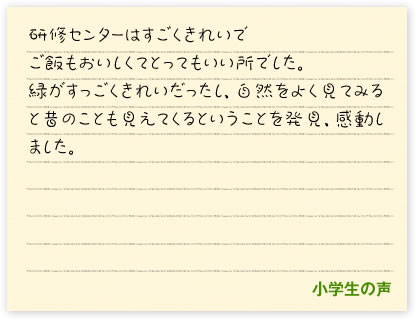 研修センターはすごくきれいで
ご飯もおいしくてとってもいい所でした。
緑がすっごくきれいだったし、自然をよく見てみる
と昔のことも見えてくるということを発見、感動し
ました。
小学生の声